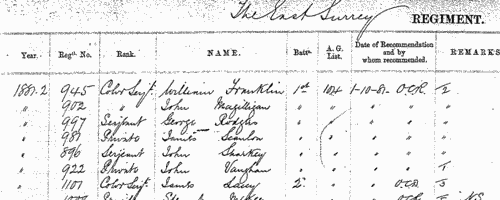 The East Surrey REGIMENT.
Year. Regtl. No. Rank. NAME. Batn. A. G. List. Date of Recommendation and by whom recommended. REMARKS
1881-2 945 Color Serjt. William Franklin 1st 104 1-10-81- O.C.R. 2
" 902 " John Magilligan " " " " "
" 997 Serjeant George Rodgers " " " " "
" 987 Private James Scanlon " " " "
" 896 Serjeant John Sharkey " " " "
" 922 Private John Vaughan " " " "
" 1101 Color Serjt. James Lacey 2 " " O.C.R.